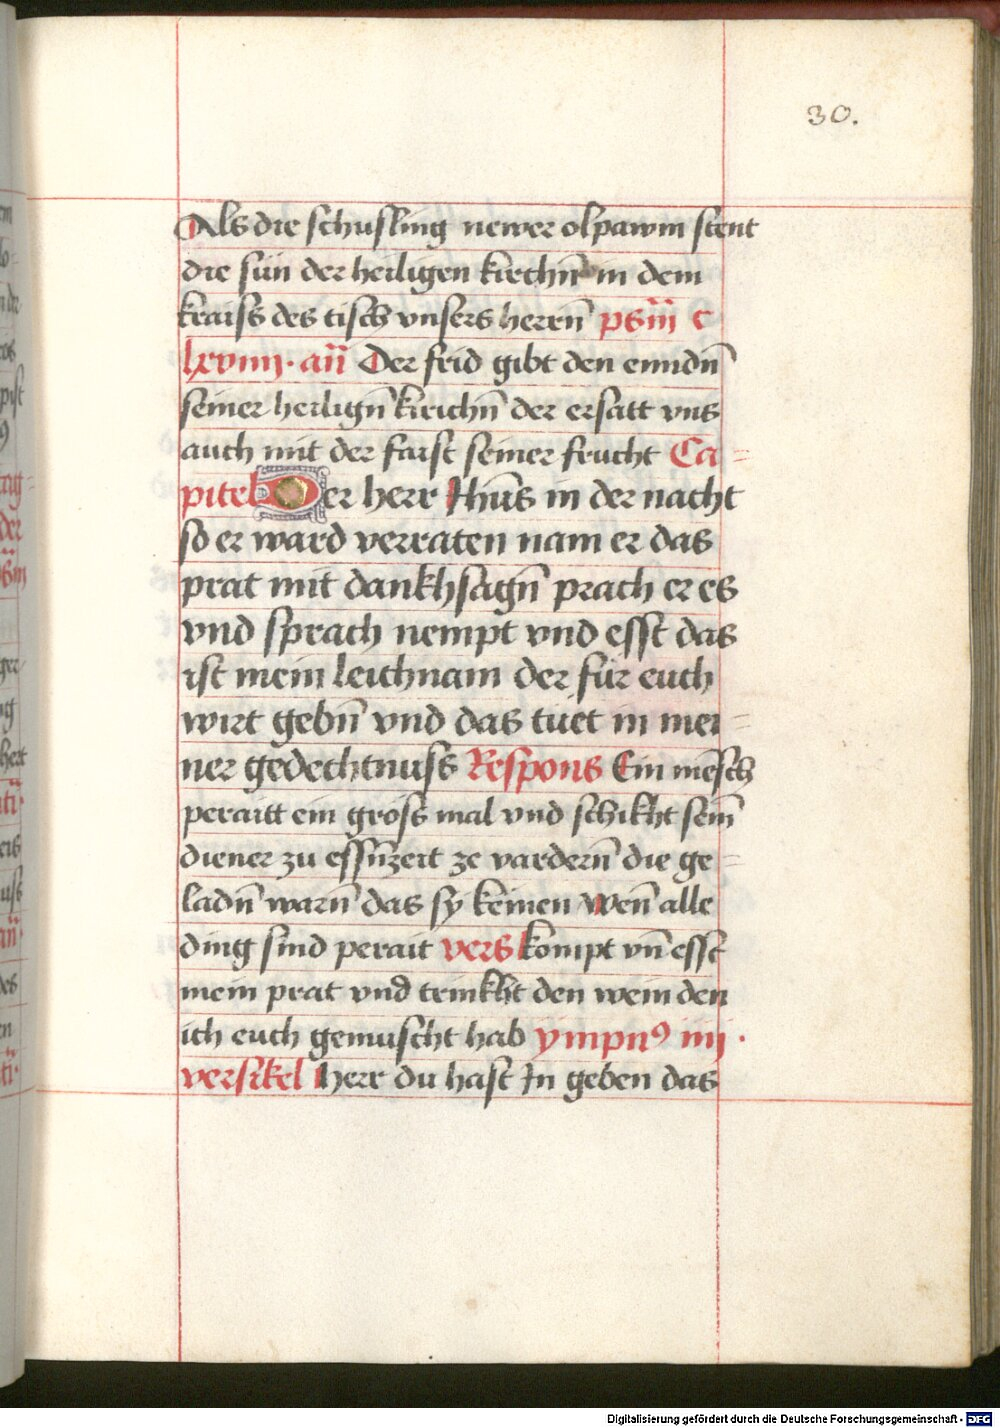 30.
Als die schusling newer olpawm stent
die sün der heiligen kirchn̄ in dem
kraiss des tisch vnsers herrn̄ psm̄ c
lxvıııı · an̄ Der frid gibt den enndn̄
seiner heilign̄ kirichn̄ der ersatt vns
auch mit der faist seiner frucht Ca=
pitel Der herr Jhus̄ in der nacht
so er ward verraten nam er das
prat mit dankhsagn̄ prach er es
vnd sprach nempt vnd esst das
ist mein leichnam der für euch
wirt gebn̄ vnd das tüet in mei=
ner gedechtnuss Respons Ein mēsch
peraitt ein gross mal vnd schikht sein̄
diener zu essn̄zeit ze vardern̄ die ge=
ladn̄ warn̄ das sy kēmen wen̄ alle
ding sind perait vers kompt vn̄ esst
mein prat vnd trinkht den wein den
ich euch gemuscht hab ympnꝯ iiij ·
versikel herr du hast In geben das
Digitalisierung gefördert durch die Deutsche Forschungsgemeinschaft - DFG